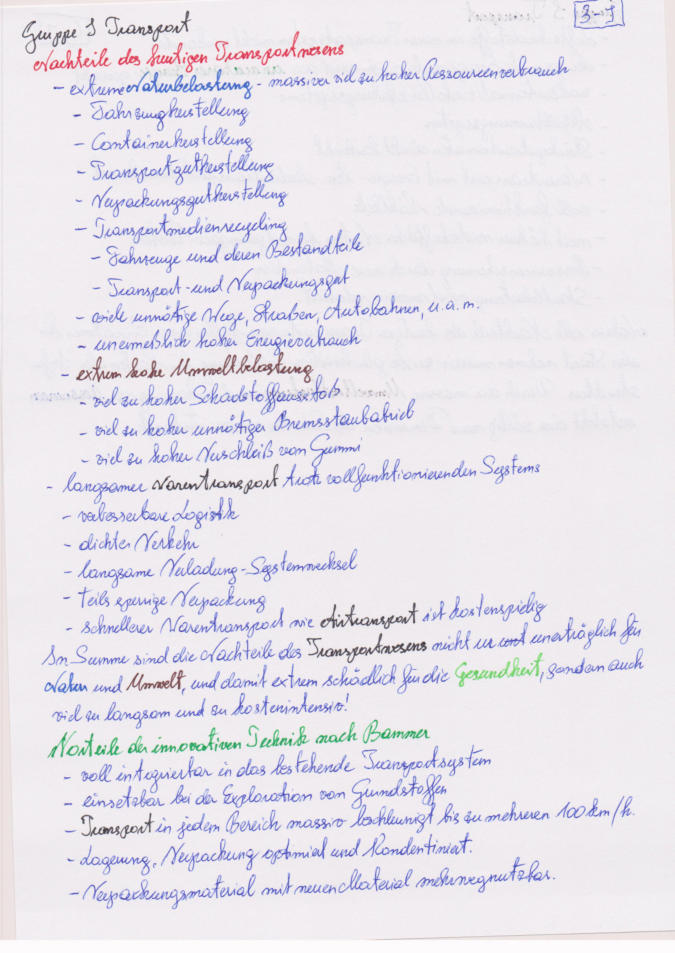 3-1
Gruppe 3 Transport
Nachteile des heutigen Transportwesens
- extreme Naturbelastung - massiver viel zu hoher Ressourcenverbrauch
- Fahrzeugherstellung
- Containerherstellung
- Transportgutherstellung
- Verpackungsgutherstellung
- Transportmedienrecycling
- Fahrzeuge und deren Bestandteile
- Transport- und Verpackungsgut
- viele unnötige Wege, Straßen, Autobahnen, u.a.m.
- unermeßlich hoher Energieverbrauch
- extrem hohe Umweltbelastung
- viel zu hoher Schadstoffausstoß
- viel zu hoher unnötiger Bremsstaubabrieb
- viel zu hoher Verschleiß von Gummi
- langsamer Warentransport trotz vollfunktionierenden Systems
- verbesserbare Logistik
- dichter Verkehr
- langsame Verladung-Systemwechsel
- teils sperrige Verpackung
- schnellerer Warentransport wie Airtransport ist kostenspielig
In Summe sind die Nachteile des Transportwesens nicht nur unerträglich für
Natur und Umwelt, und damit extrem schädlich für die Gesundheit, sondern auch
viel zu langsam und zu kostenintensiv!
Vorteile der innovativen Technik nach Bammer
- voll integrierbar in das bestehende Transportsystem
- einsetzbar bei der Exploration von Grundstoffen
- Transport in jedem Bereich massiv beschleunigt bis zu mehreren 100 km/h.
- Lagerung, Verpackung optimiert und
- Verpackungsmaterial mit neuen Material mehrwegnutzbar.